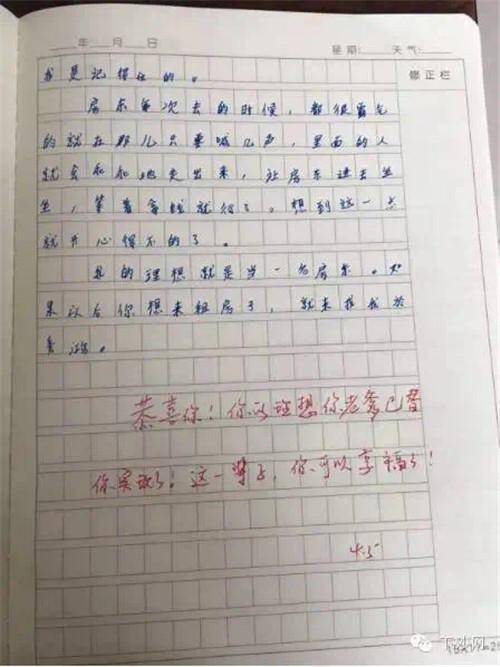 年 月 日 星期: 天气:
修正栏
我是记得住的。
房东每次去的时候，都很霸气
的就在那儿只要喊几声，里面的人
就会和和地走出来，让房东进去坐
坐，等着拿钱就行了。想到这一点
就开心得不的了。
我的理想就是当一名房东。如
果以后你想来租房子，就来找我
恭喜你！你的理想你老爹已替
你实现了！这一辈子，你可以享福了！
4.5